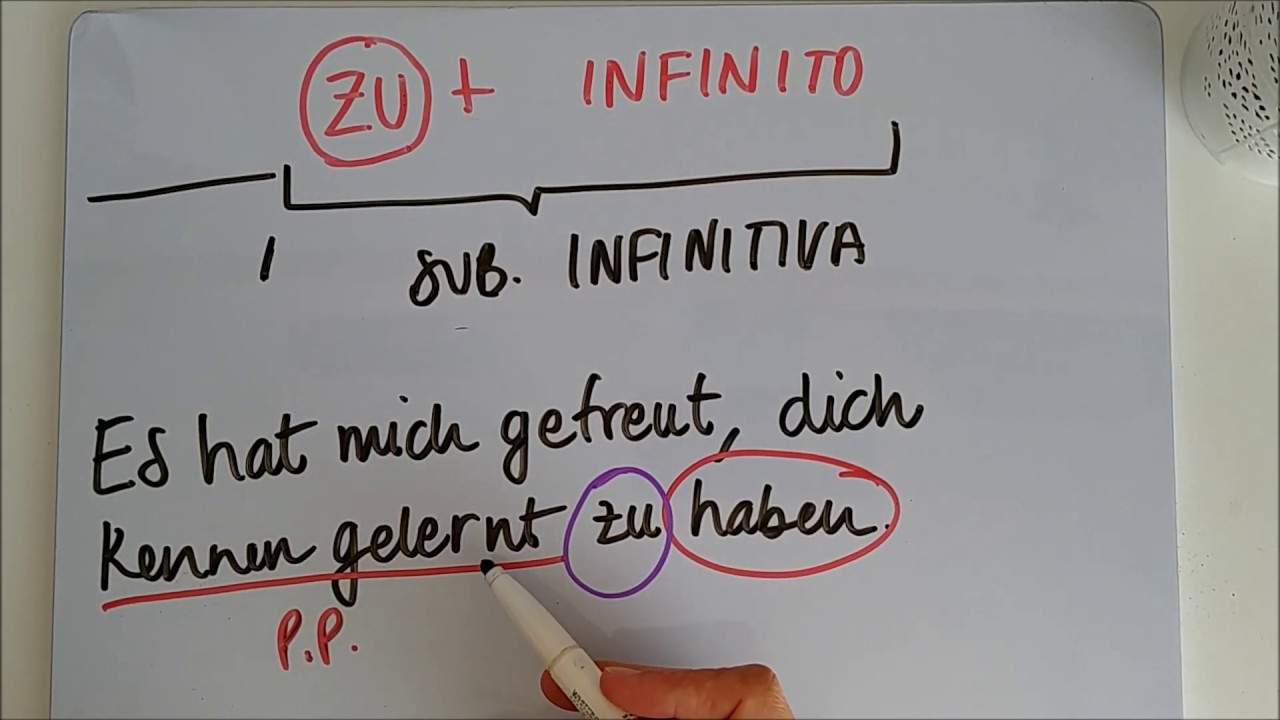 ZU + INFINITO
1 SUB. INFINITIVA
Es hat mich gefreut, dich
kennen gelernt zu haben.
P.P.